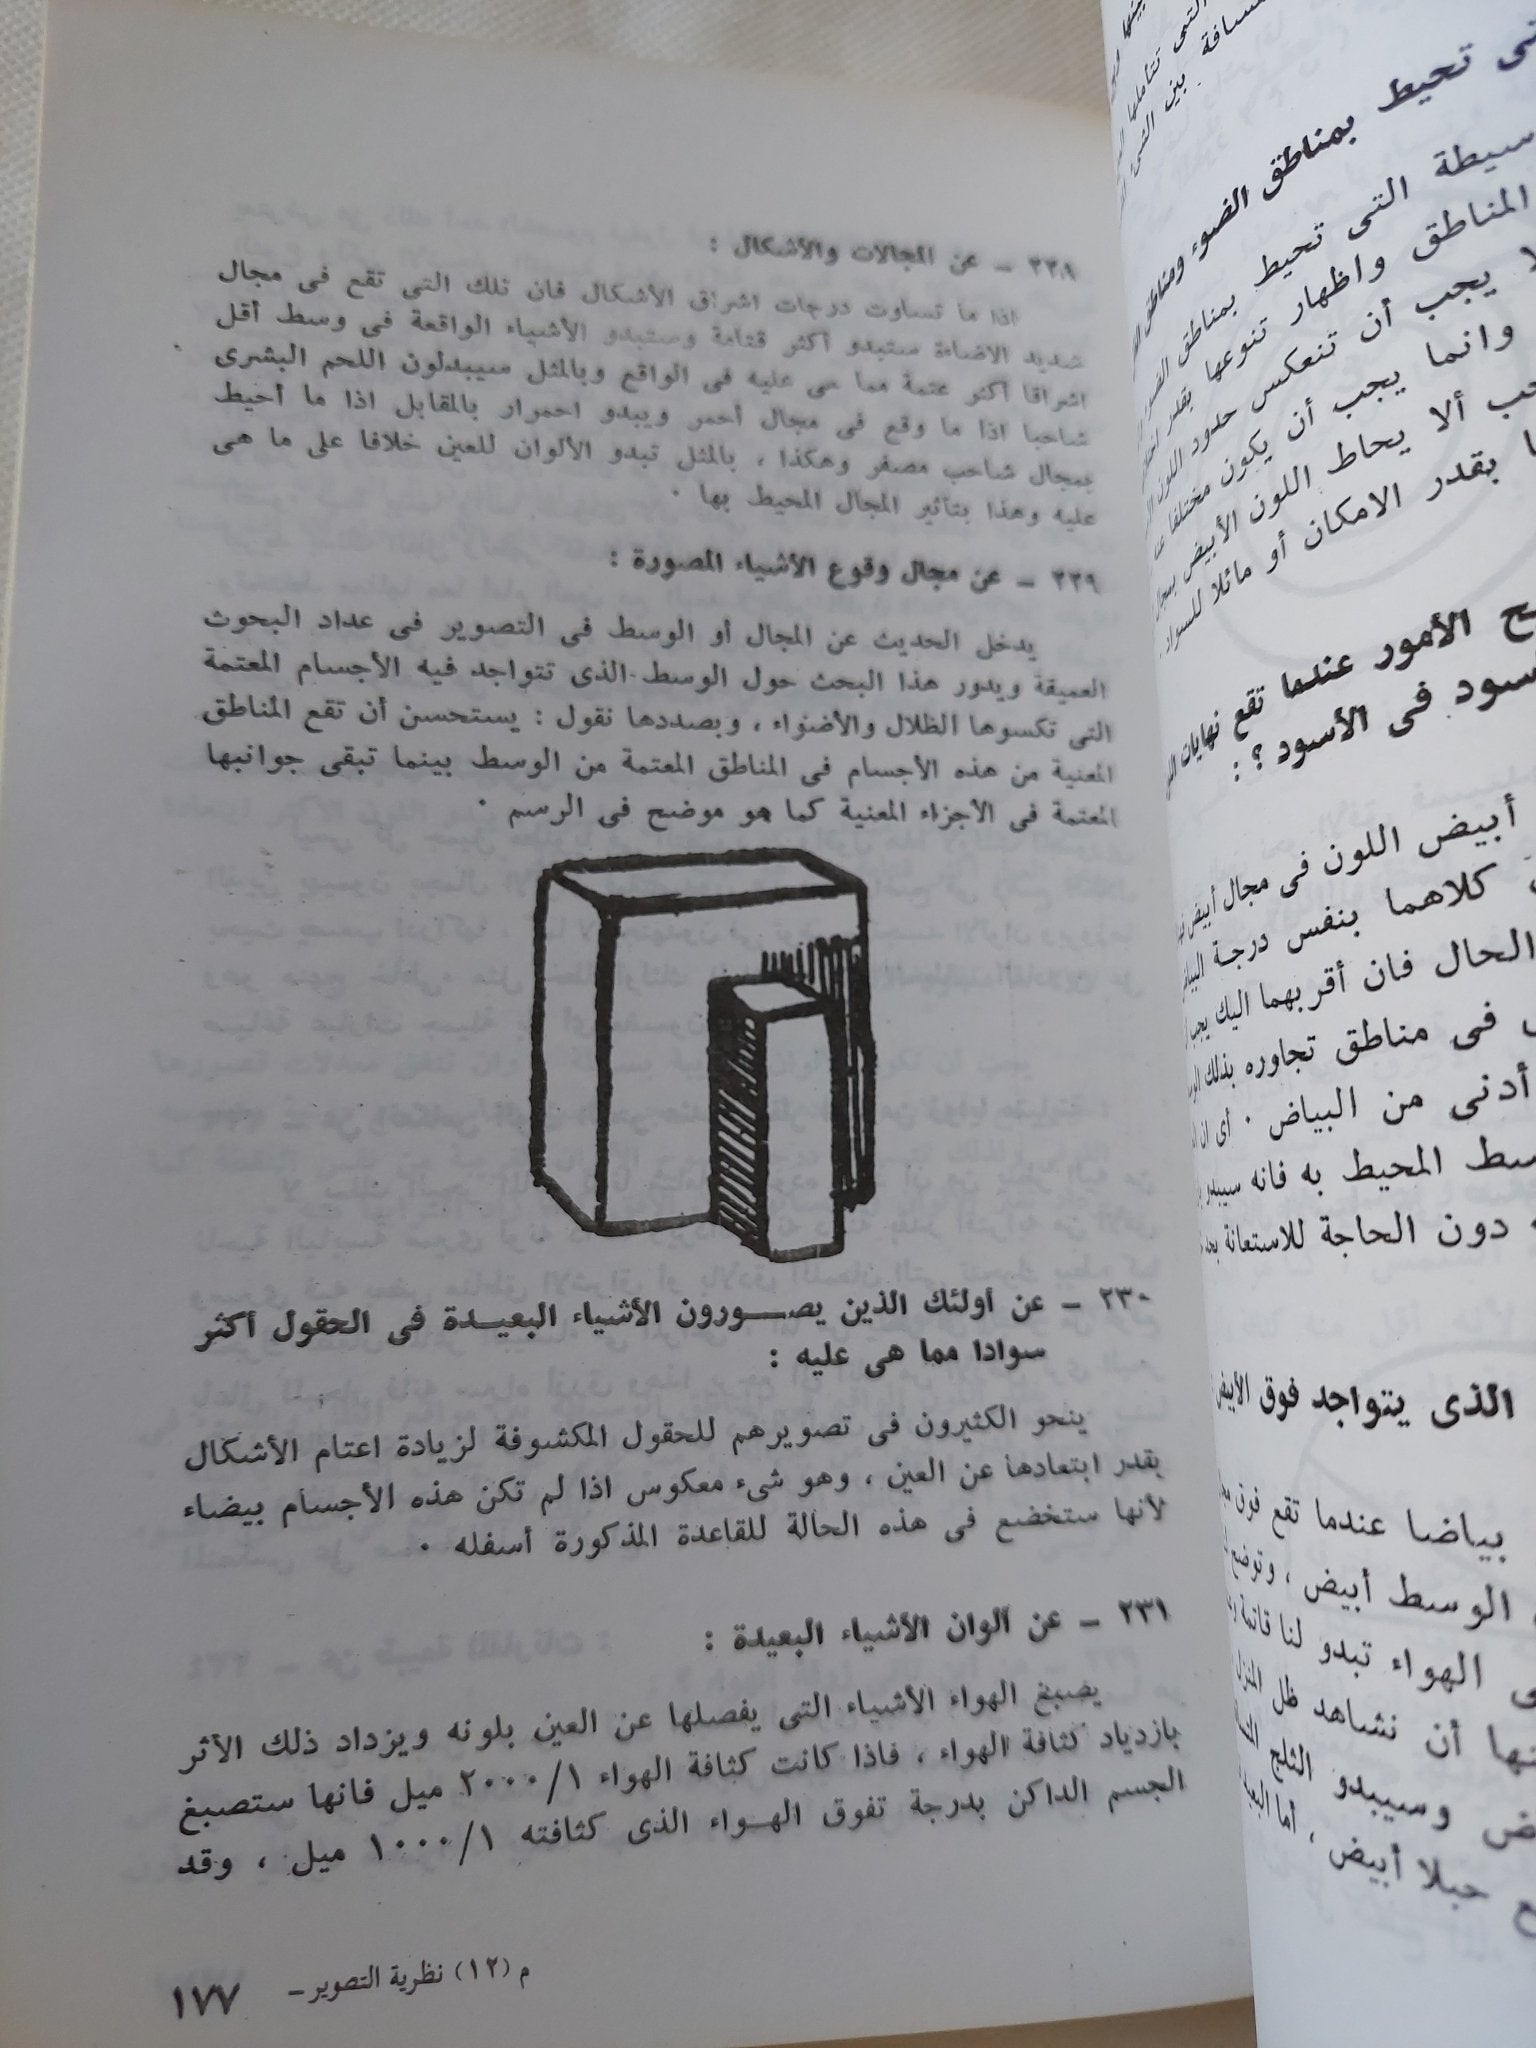 ٢٢٨ – عن المجالات والأشكال :
اذا ما تساوت درجات اشراق الأشكال فان تلك التى تقع فى مجال
شديد الاضاءة ستبدو أكثر قتامة وستبدو الأشياء الواقعة فى وسط أقل
اشراقا أكثر عتمة مما هى عليه فى الواقع وبالمثل سيبدلون اللحم البشرى
شاحبا اذا ما وقع فى مجال أحمر ويبدو احمرار بالمقابل اذا ما أحيط
بمجال شاحب مصفر وهكذا ، بالمثل تبدو الألوان للعين خلافا على ما هى
عليه وهذا بتأثير المجال المحيط بها ·
٢٢٩ – عن مجال وقوع الأشياء المصورة :
يدخل الحديث عن المجال أو الوسط فى التصوير فى عداد البحوث
العميقة ويدور هذا البحث حول الوسط الذى تتواجد فيه الأجسام المعتمة
التى تكسوها الظلال والأضواء ، وبصددها نقول : يستحسن أن تقع المناطق
المعنية من هذه الأجسام فى المناطق المعتمة من الوسط بينما تبقى جوانبها
المعتمة فى الأجزاء المعنية كما هو موضح فى الرسم ·
٢٣٠ – عن أولئك الذين يصورون الأشياء البعيدة فى الحقول أكثر
سوادا مما هى عليه :
ينحو الكثيرون فى تصويرهم للحقول المكشوفة لزيادة اعتام الأشكال
بقدر ابتعادها عن العين ، وهو شىء معكوس اذا لم تكن هذه الأجسام بيضاء
لأنها ستخضع فى هذه الحالة للقاعدة المذكورة أسفله ·
٢٣١ – عن ألوان الأشياء البعيدة :
يصبغ الهواء الأشياء التى يفصلها عن العين بلونه ويزداد ذلك الأثر
بازدياد كثافة الهواء ، فاذا كانت كثافة الهواء ٢٠٠٠/١ ميل فانها ستصبغ
الجسم الداكن بدرجة تفوق الهواء الذى كثافته ١٠٠٠/١ ميل ، وقد
م (١٢) نظرية التصوير –
١٧٧
تحيط بمناطق الضوء ومناطق
التى تحيط بمناطق
المناطق واظهار تنوعها بقدر
يجب أن تنعكس حدود اللون
وانما يجب أن يكون مختلفا
ألا يحاط اللون الأبيض
بقدر الامكان أو مائلا للسواد
الأمور عندما تقع نهايات
فى الأسود ؟ :
أبيض اللون فى مجال أبيض
كلاهما بنفس درجة
الحال فان أقربهما اليك يجب
فى مناطق تجاوره بذلك
أدنى من البياض · أى ان
المحيط به فانه سيبدو
دون الحاجة للاستعانة
الذى يتواجد فوق الأبيض
بياضا عندما تقع فوق
الوسط أبيض ، وتوضع
الهواء تبدو لنا قاتمة
أن نشاهد ظل المنزل
وسيبدو الثلج
جبلا أبيض ، أما